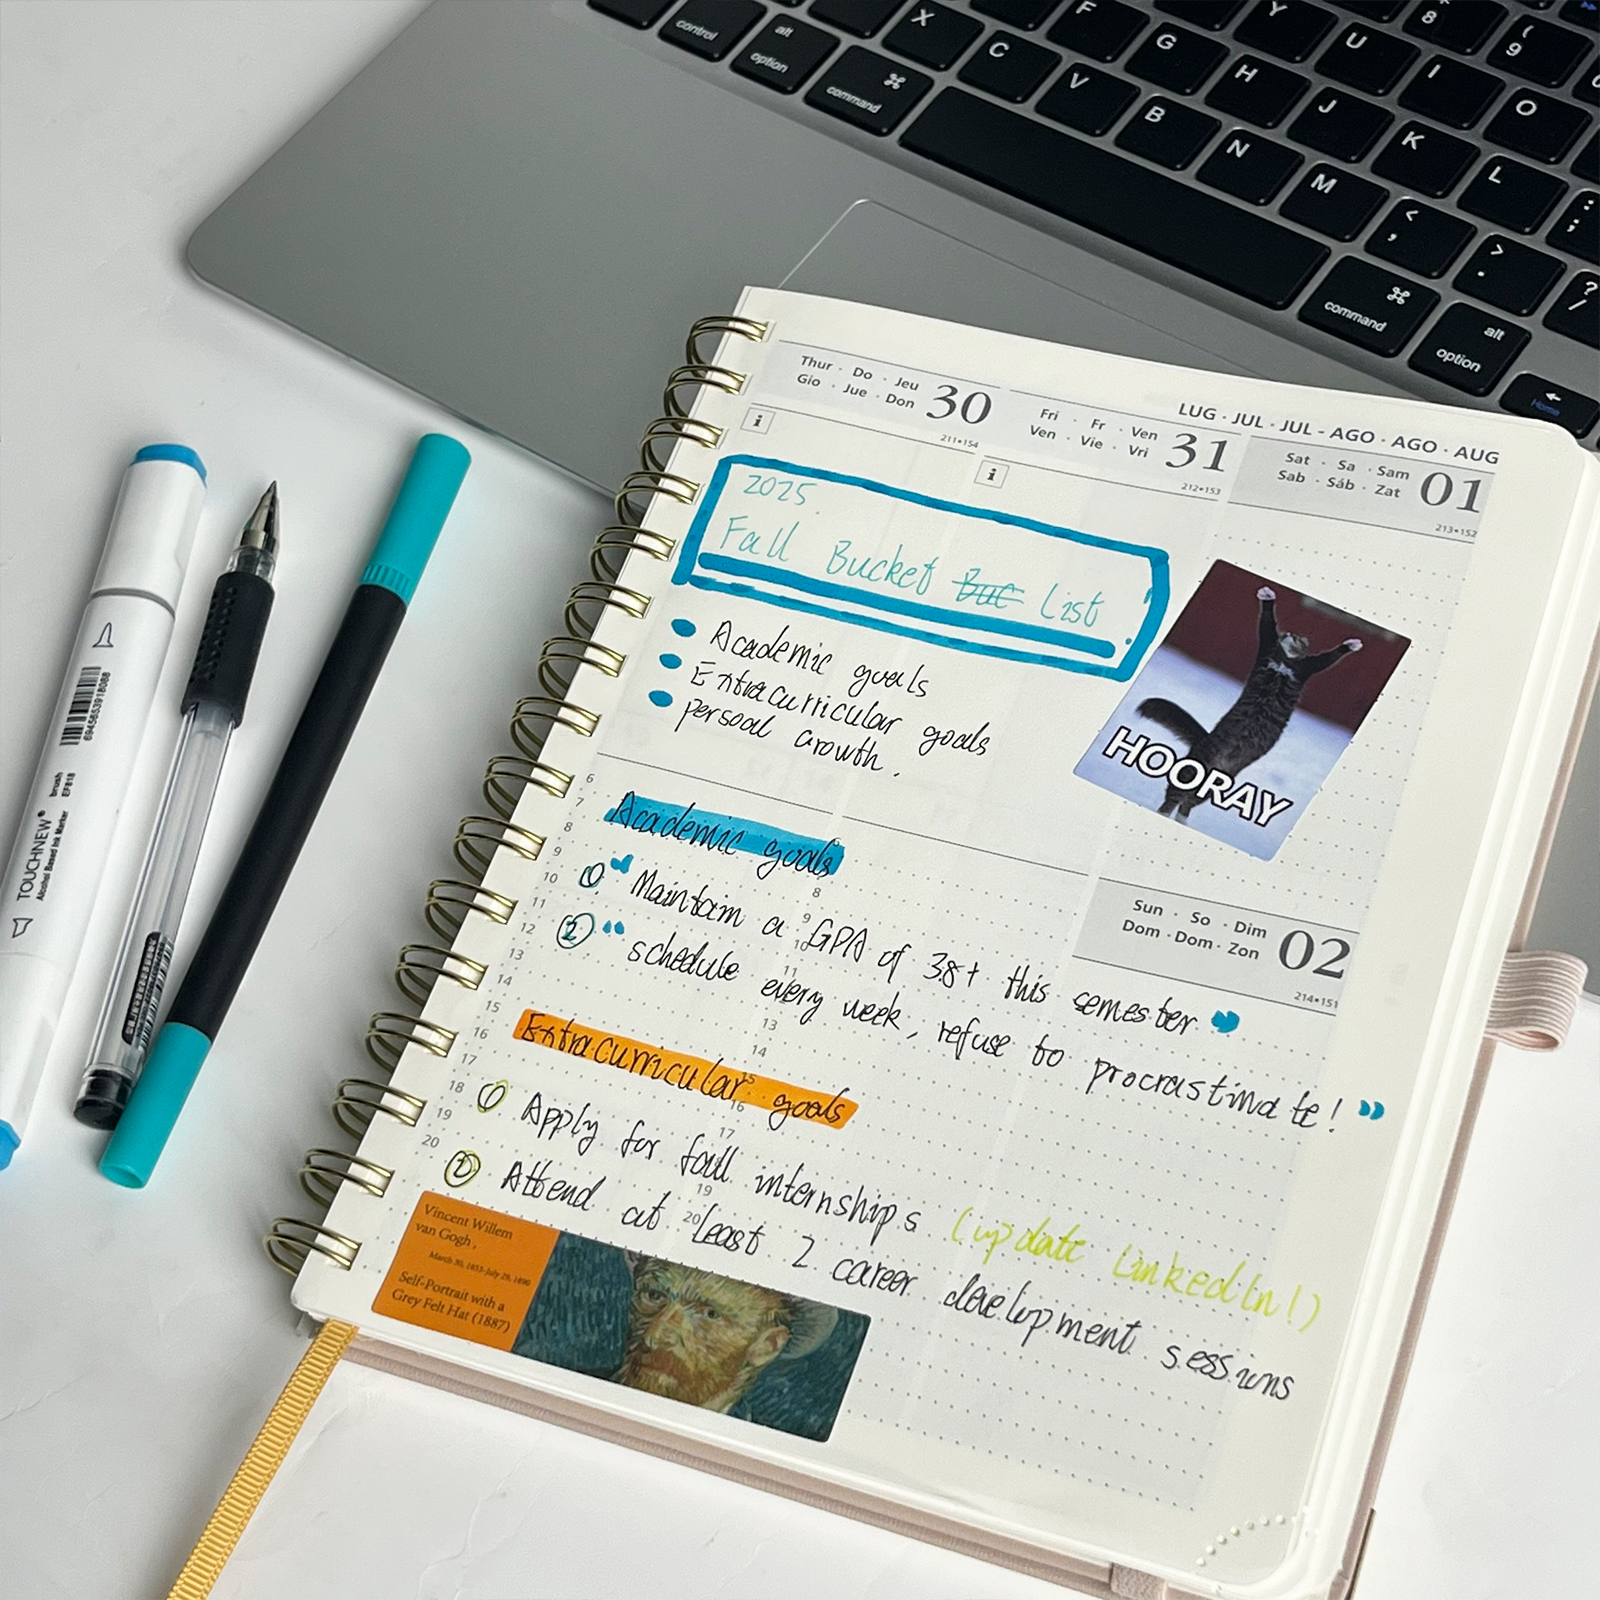 control
alt
option
command
X
C
V
B
N
M
F
G
H
J
K
L
Y
U
I
O
8
( 9
< ,
> .
? /
: ;
command
alt
option
Home
LUG · JUL · JUL - AGO · AGO · AUG
Thur · Do · Jeu
Gio · Jue · Don
30
211•154
Fri · Fr · Ven
Ven · Vie · Vri
31
212•153
Sat · Sa · Sam
Sab · Sáb · Zat
01
213•152
2025.
Fall Bucket Buc List
Academic goals
Extracurricular goals
persoal Growth.
HOORAY
Academic goals
① Maintain a GPA of 3.8+ this semester
② schedule every week, refuse to procrastinate!
Sun · So · Dim
Dom · Dom · Zon
02
214•151
Extracurricular goals
① Apply for fall internships (update LinkedIn!)
② Attend at least 2 career development sessions
6
7
8
9
10
11
12
13
14
15
16
17
18
19
20
8
9
10
11
13
14
15
16
17
19
20
Vincent Willem
van Gogh,
March 30, 1853-July 29, 1890
Self-Portrait with a
Grey Felt Hat (1887)
TOUCHNEW®
Alcohol Based Ink Marker
brush
EF818
6945653918088